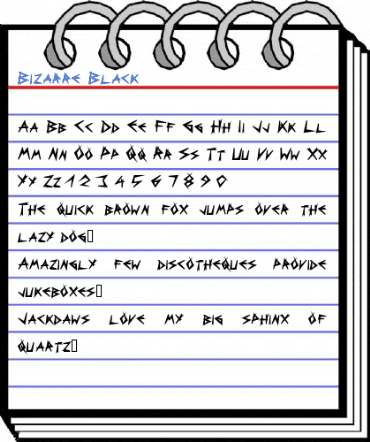 Bizarre Black
Aa Bb Cc Dd Ee Ff Gg Hh Ii Jj Kk Ll
Mm Nn Oo Pp Qq Rr Ss Tt Uu Vv Ww Xx
Yy Zz 1 2 3 4 5 6 7 8 9 0
The quick brown fox jumps over the
lazy dog□
Amazingly few discotheques provide
jukeboxes□
Jackdaws love my big sphinx of
quartz□